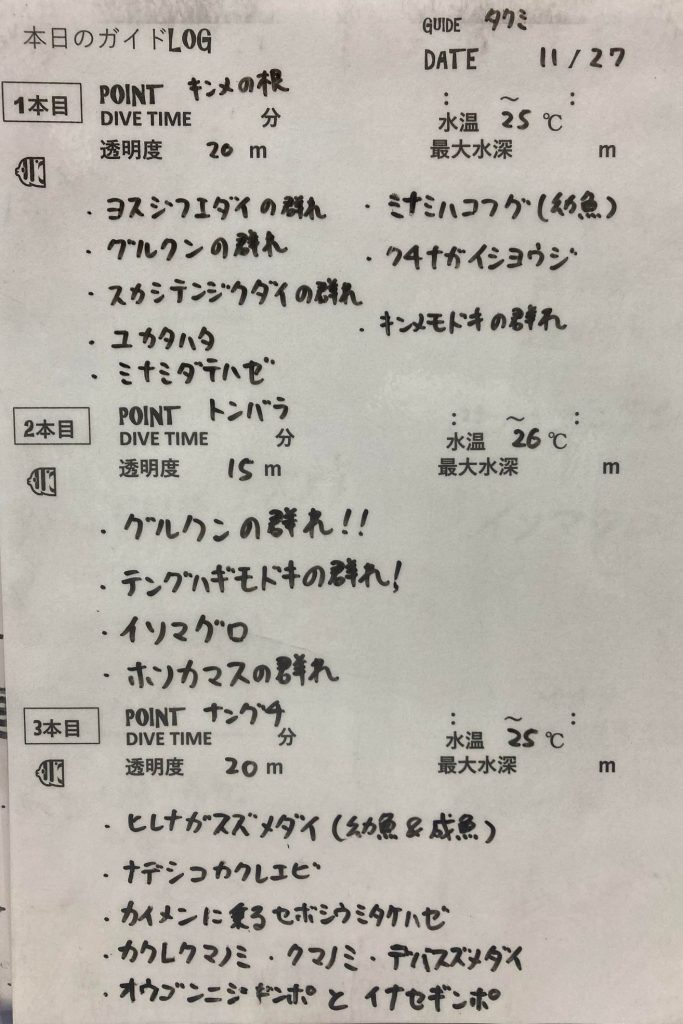 本日のガイドLOG
GUIDE タクミ
DATE 11/27
1本目
POINT キンメの根
DIVE TIME 分
: ～ :
水温 25 ℃
透明度 20 m
最大水深 m
・ヨスジフエダイの群れ
・グルクンの群れ
・スカシテンジクダイの群れ
・ユカタハタ
・ミナミダテハゼ
・ミナミハコフグ(幼魚)
・クチナガイシヨウジ
・キンメモドキの群れ
2本目
POINT トンバラ
DIVE TIME 分
: ～ :
水温 26 ℃
透明度 15 m
最大水深 m
・グルクンの群れ!!
・テングハギモドキの群れ!
・イソマグロ
・ホソカマスの群れ
3本目
POINT ナングチ
DIVE TIME 分
: ～ :
水温 25 ℃
透明度 20 m
最大水深 m
・ヒレナガスズメダイ(幼魚&成魚)
・ナデシコカクレエビ
・カイメンに乗るセボシウミタケハゼ
・カクレクマノミ・クマノミ・デバスズメダイ
・オウゴンニジギンポと イナセギンポ